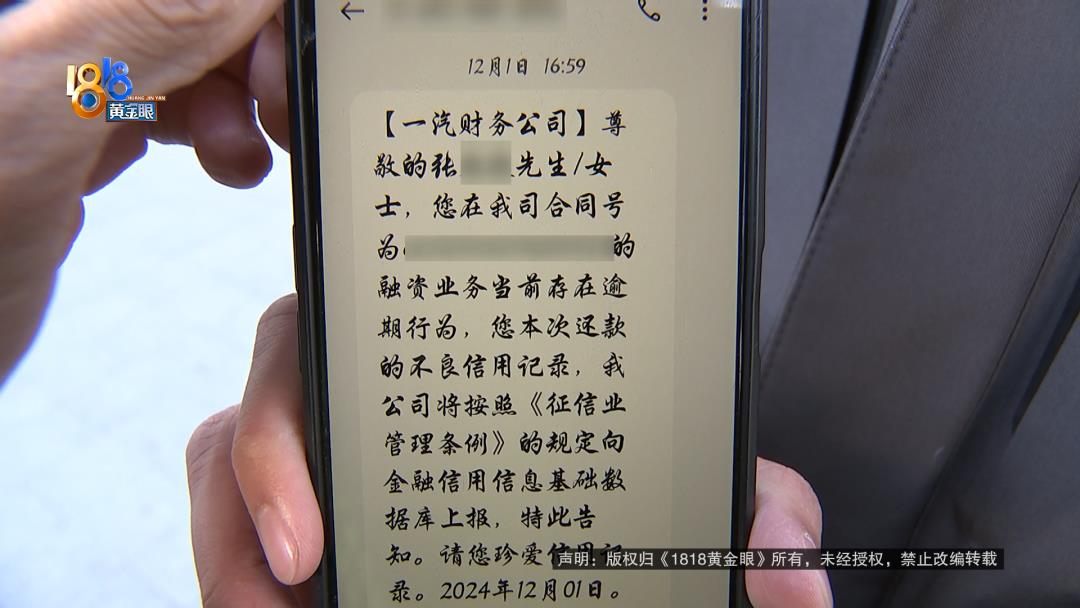 1818
HUANG JIN YAN
黄金眼
12月1日 16:59
【一汽财务公司】尊
敬的张 先生/女
士，您在我司合同号
为 的
融资业务当前存在逾
期行为，您本次还款
的不良信用记录，我
公司将按照《征信业
管理条例》的规定向
金融信用信息基础数
据库上报，特此告
知。请您珍爱信用记
录。2024年12月01日。
声明：版权归《1818黄金眼》所有，未经授权，禁止改编转载